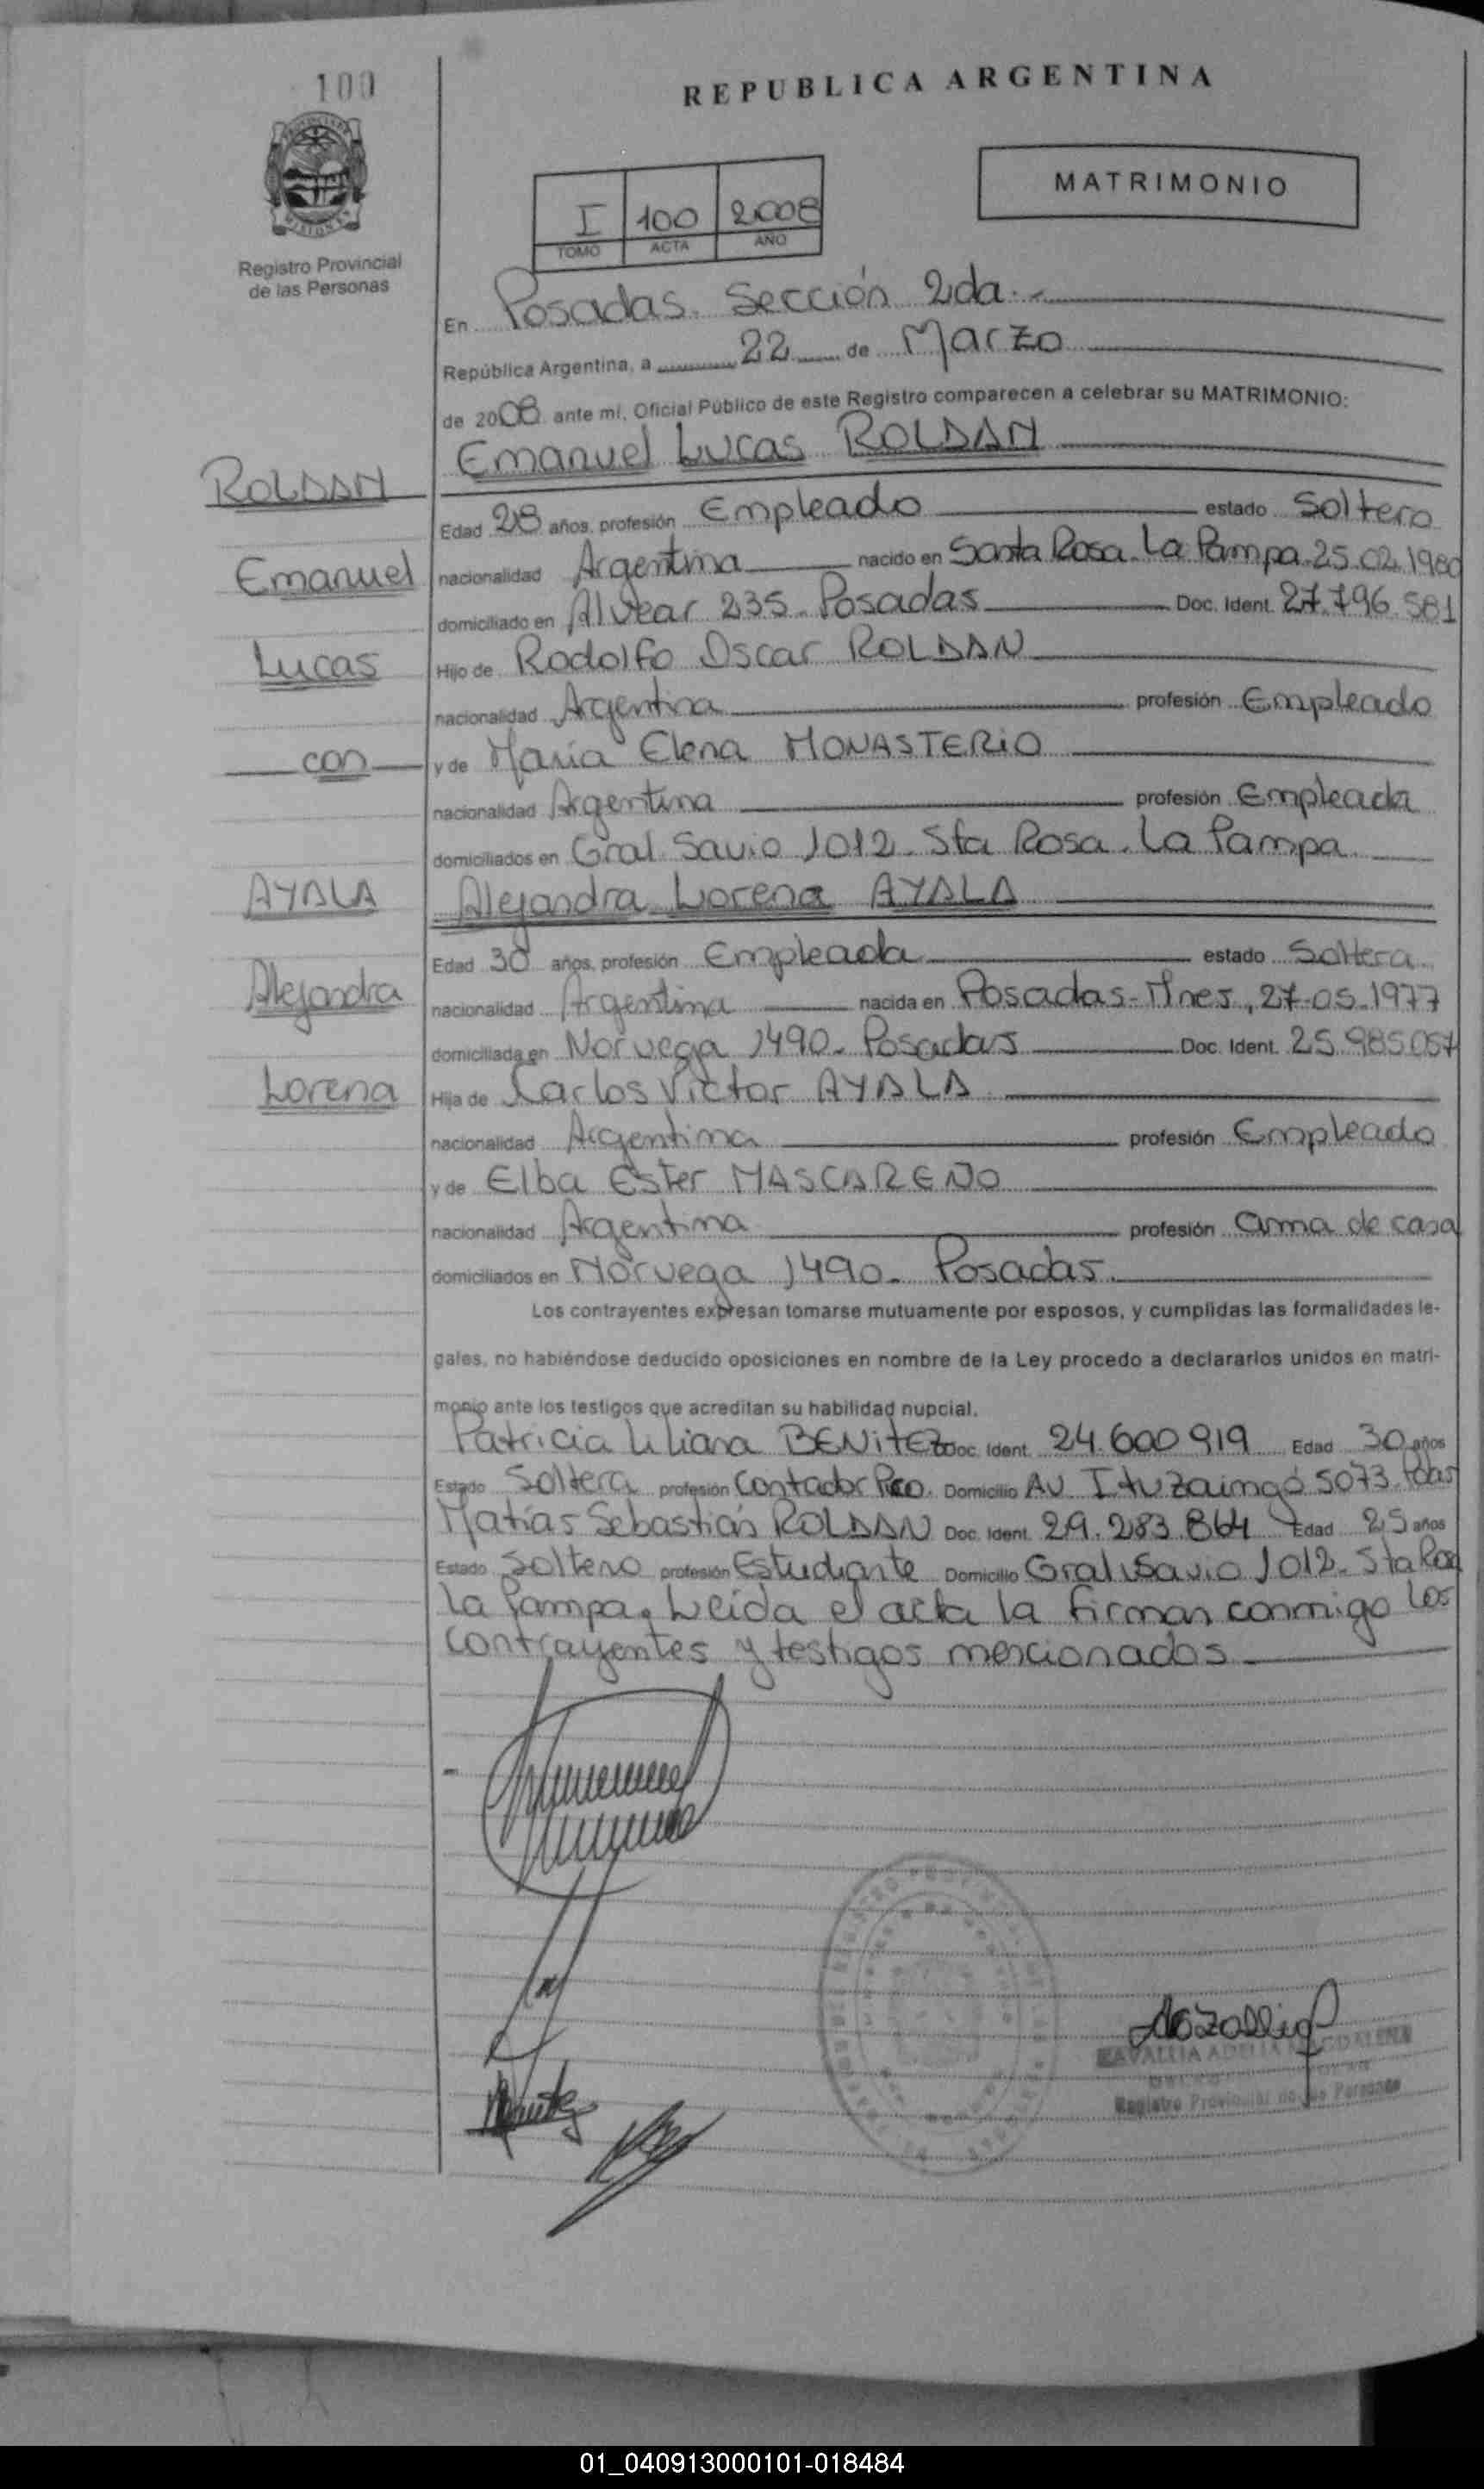 100
REPUBLICA ARGENTINA
MATRIMONIO
I 100 2008
TOMO ACTA AÑO
Registro Provincial
de las Personas
En Posadas. Sección 2da.-
República Argentina, a 22 de Marzo
de 2008 ante mí, Oficial Público de este Registro comparecen a celebrar su MATRIMONIO:
Emanuel Lucas ROLDAN
ROLDAN
Edad 28 años, profesión Empleado estado Soltero
Emanuel
nacionalidad Argentina nacido en Santa Rosa. La Pampa. 25.02.1980
domiciliado en Alvear 235. Posadas Doc. Ident. 27.796.581
Lucas
Hijo de Rodolfo Oscar ROLDAN
nacionalidad Argentina profesión Empleado
con
y de María Elena MONASTERIO
nacionalidad Argentina profesión Empleada
domiciliados en Gral Savio 1012. Sta Rosa. La Pampa.
AYALA
Alejandra Lorena AYALA
Edad 30 años, profesión Empleada estado Soltera
Alejandra
nacionalidad Argentina nacida en Posadas-Mnes, 27-05-1977
domiciliada en Norvega 1490. Posadas Doc. Ident. 25.985.057
Lorena
Hija de Carlos Víctor AYALA
nacionalidad Argentina profesión Empleado
y de Elba Ester MASCAREÑO
nacionalidad Argentina profesión ama de casa
domiciliados en Norvega 1490. Posadas.
Los contrayentes expresan tomarse mutuamente por esposos, y cumplidas las formalidades le-
gales, no habiéndose deducido oposiciones en nombre de la Ley procedo a declararlos unidos en matri-
monio ante los testigos que acreditan su habilidad nupcial.
Patricia Liliana BENITEZ Doc. Ident. 24.600.919 Edad 30 años
Estado Soltera profesión Contador Pco. Domicilio AV. Ituzaingó 5073. Pdas
Matías Sebastián ROLDAN Doc. Ident. 29.283.864 Edad 25 años
Estado Soltero profesión Estudiante Domicilio Gral Savio 1012. Sta Rosa
La Pampa. Leída el acta la firman conmigo los
contrayentes y testigos mencionados
Registro Provincial de las Personas
01_040913000101-018484